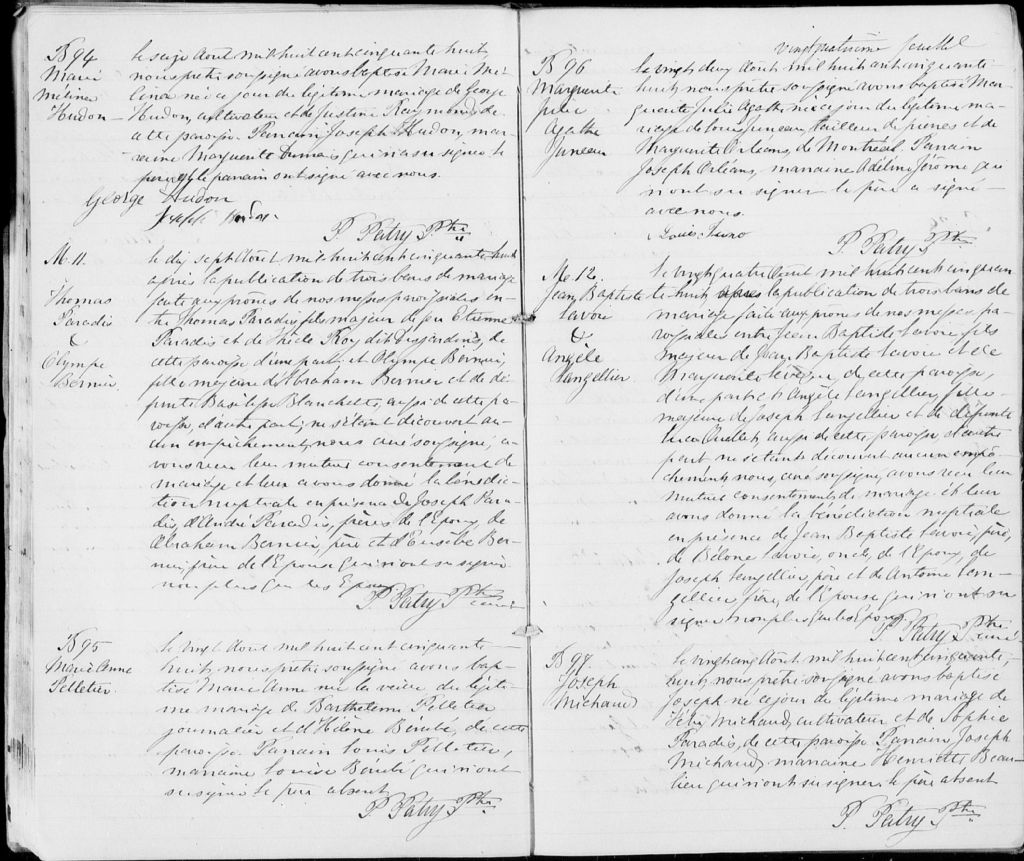 B 94
Marie
Mélina
Hudon
le seize Aout mil huit cent cinquante huit
nous prêtre soussigné avons baptisé Marie Mé-
lina née ce jour du légitime mariage de George
Hudon, cultivateur et de Justine Raymond, de
cette paroisse. Parrain Joseph Hudon, mar-
raine Marguerite Dumais qui n'a su signer le
père et le parrain ont signé avec nous.
George Hudon
Joseph
P Patry Ptre
M. 11.
Thomas
Paradis
&
Olympe
Bernier.
le dix sept Aout mil huit cent cinquante huit
après la publication de trois bans de mariage
faite aux prônes de nos messes paroissiales en-
tre Thomas Paradis fils majeur de feu Etienne
Paradis et de Thècle Roy dit Desjardins, de
cette paroisse d'une part; et Olympe Bernier,
fille majeure d'Abraham Bernier et de dé-
funte Basilisse Blanchette, aussi de cette pa-
roisse, d'autre part; ne s'étant découvert au-
cun empêchement, nous curé soussigné, a-
vons reçu leur mutuel consentement de
mariage et leur avons donné la bénédic-
tion nuptiale en présence de Joseph Para-
dis, d'André Paradis, frères de l'Epoux, de
Abraham Bernier, père et d'Eusèbe Ber-
nier, frère de l'Epouse qui n'ont su signer
non plus que les Epoux
P Patry Ptre
curé
B 95
Marie Anne
Pelletier.
le vingt Aout mil huit cent cinquante-
huit, nous prêtre soussigné avons bap-
tisé Marie Anne née la veille du légiti-
me mariage de Barthelemi Pelletier
journalier et d'Hélène Bérubé, de cette
paroisse. Parrain Louis Pelletier,
marraine Louise Bérubé qui n'ont
su signer le père absent
P Patry Ptre
vingt quatrième feuillet
B 96
Marguerite
Julie
Agathe
Juneau
le vingt deux Aout mil huit cent cinquante
huit, nous prêtre soussigné avons baptisé Mar-
guerite Julie Agathe, née ce jour du légitime ma-
riage de Louis Juneau, tailleur de pierres et de
Marguerite Orléans, de Montréal. Parrain
Joseph Orléans, marraine Adéline Jérome qui
n'ont su signer le père a signé
avec nous.
Louis Juno
P. Patry Ptre
M. 12.
Jean Baptiste
Lavoie
&
Angèle
Langellier.
le vingt quatre Aout mil huit cent cinquan
te-huit après la publication de trois bans de
mariage faite aux prônes de nos messes pa-
roissiales entre Jean Baptiste Lavoie fils
majeur de Jean Baptiste Lavoie et de
Marguerite de cette paroisse,
d'une part et Angèle Langellier, fille
majeure de Joseph Langellier et de défunte
Ouellet, aussi de cette paroisse d'autre
part ne s'étant découvert aucun empê-
chement, nous, curé soussigné, avons reçu leur
mutuel consentement de mariage et leur
avons donné la bénédiction nuptiale
en présence de Jean Baptiste Lavoie, père,
de Bélone Lavoie, oncle, de l'Epoux, de
Joseph Langellier, père et de Antoine Lan-
gellier frère, de l'Epouse qui n'ont su
signer non plus que les Epoux.
P Patry Ptre
curé
B 97.
Joseph
Michaud
le vingt cinq Aout mil huit cent cinquante,
huit, nous prêtre soussigné avons baptisé
Joseph né ce jour du légitime mariage de
Félix Michaud, cultivateur et de Sophie
Paradis, de cette paroisse Parrain, Joseph
Michaud, marraine Henriette Beau-
lieu qui n'ont su signer, le père absent
P. Patry Ptre